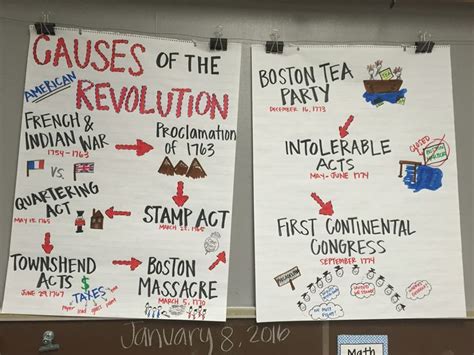 CAUSES OF THE
AMERICAN
REVOLUTION
FRENCH &
INDIAN WAR
1754-1763
VS.
Proclamation
of 1763
QUARTERING
ACT
MAY 15, 1765
STAMP ACT
MARCH 22, 1765
TOWNSHEND
ACTS
JUNE 29, 1767
TAXES
BOSTON
MASSACRE
MARCH 5, 1770
BOSTON TEA
PARTY
DECEMBER 16, 1773
INTOLERABLE
ACTS
MAY-JUNE 1774
CLOSED
FIRST CONTINENTAL
CONGRESS
SEPTEMBER 1774
January 8, 2016
Math